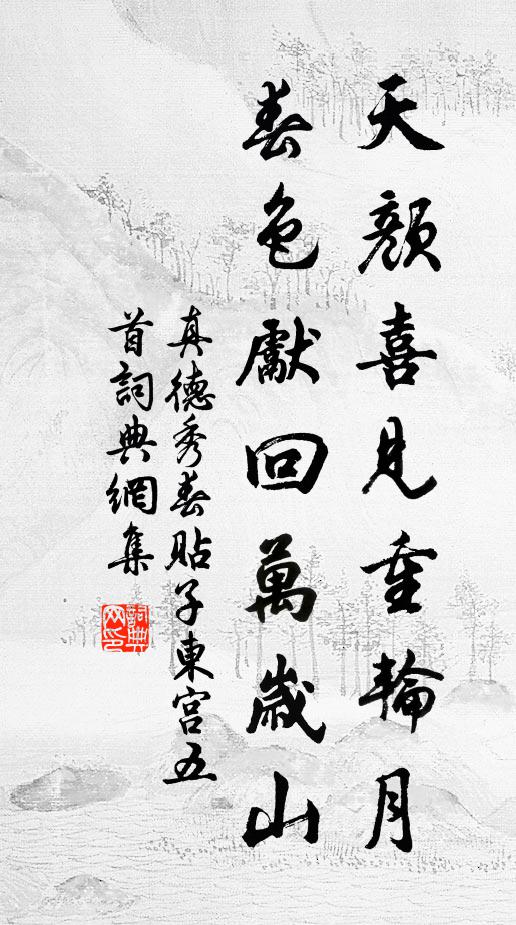 天顏喜見重輪月
春色獻回萬歲山
真德秀春貼子東宮五
首詞典網集
詞典網印